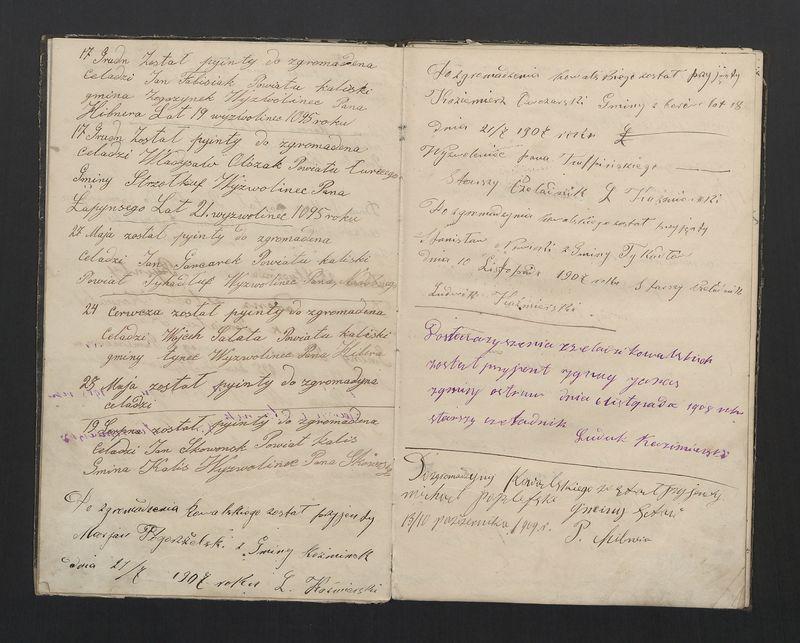 17 Grudn Został pyinty do zgromadena
celadzi Jan Fabisiak Powiatu kaliski
gmina Zegozynek Wyzwolinec Pana
Hibnera Lat 19 wyzwolinec 1095 roku
17 Grudn Zostal pyinty do zgromadena
celadzi Władysaw Olszak Powiatu
Gminy Strzolkuf Wyzwolinec Pana
Łapynsego Lat 21 wyzwolinec 1095 roku
27 Maja został pyinty do zgromadena
celadzi Jan Gancarek Powiatu kaliski
Powiat Tykadłuf Wyzwolinec Pana
24 Cerwcza został pyinty do zgromadena
celadzi Wojceh Sałata Powiatu kaliski
gminy tynec Wyzwolinec Pana Hibnra
25 Maja zostal pyinty do zgromadyna
celadzi
19 Serpna zostal pyinty do zgromadena
Celadzi Jan Skowronsk Powiat Kalis
Gmina Kalis Wyzwolinec Pana
Do zgromadzenia kowalskiego został przyjenty
Marjan z Gminy Koźminsk
dnia 21/7 1907 roku L. Kaźmierski
Do zgromadzenia kowalskiego został przyjęty
Kaźimierz Owczarski Gminy lat 18
Dnia 21/7 1907 roku
Wyzwoleniec pana
Starszy Czeladnik L Kaźmierski
Do zgromadzynia kowalskiego został przyjęty
Stanisław z Gminy Tykadłów
dnia 10 Listopada 1907 roku Starszy czeladnik
Ludwik Kaźmierski
Dostowazyszenia czeladzikowalskich
zostal przyjent ygnacy
zgminy ostrow dnia 6 listopada 1908 roku
starszy czeladnik
Ludwik Kazimierski
Dozgromadzyniy Kowalskiego zostal pryjenty
michał gminy
15/10 pazdziernika 1909 r.
P.